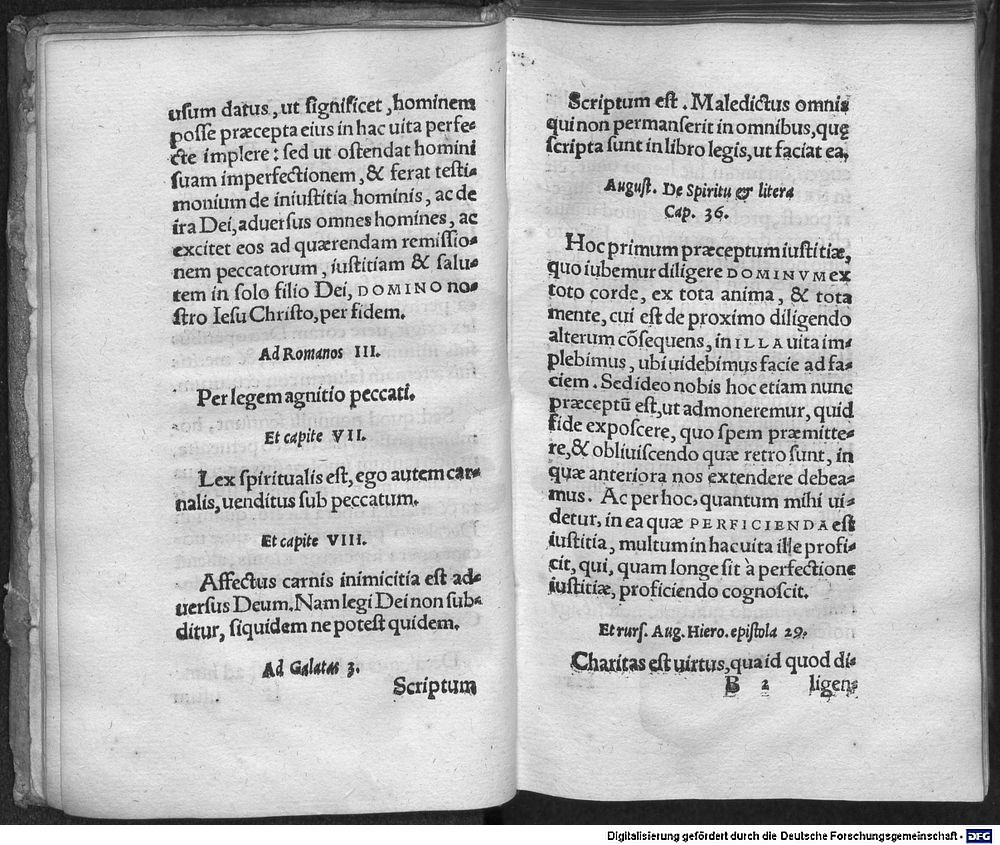 usum datus, ut significet, hominem
posse præcepta eius in hac uita perfe-
cte implere: sed ut ostendat homini
suam imperfectionem, & ferat testi-
monium de iniustitia hominis, ac de
ira Dei, aduersus omnes homines, ac
excitet eos ad quærendam remissio-
nem peccatorum, iustitiam & salu-
tem in solo filio Dei, DOMINO no-
stro Iesu Christo, per fidem.
Ad Romanos III.
Per legem agnitio peccati.
Et capite VII.
Lex spiritualis est, ego autem car-
nalis, uenditus sub peccatum.
Et capite VIII.
Affectus carnis inimicitia est ad-
uersus Deum. Nam legi Dei non sub-
ditur, siquidem ne potest quidem.
Ad Galatas 3.
Scriptum
Scriptum est. Maledictus omnis
qui non permanserit in omnibus, quę
scripta sunt in libro legis, ut faciat ea.
August. De Spiritu & litera
Cap. 36.
Hoc primum præceptum iustitiæ,
quo iubemur diligere DOMINVM ex
toto corde, ex tota anima, & tota
mente, cui est de proximo diligendo
alterum cōsequens, in ILLA uita im-
plebimus, ubi uidebimus facie ad fa-
ciem. Sed ideo nobis hoc etiam nunc
præceptū est, ut admoneremur, quid
fide exposcere, quo spem præmitte-
re, & obliuiscendo quæ retro sunt, in
quæ anteriora nos extendere debea-
mus. Ac per hoc, quantum mihi ui-
detur, in ea quæ PERFICIENDA est
iustitia, multum in hac uita ille profi-
cit, qui, quam longe sit à perfectione
iustitiæ, proficiendo cognoscit.
Et rurs. Aug. Hiero. epistola 29.
Charitas est uirtus, qua id quod di-
B 2 ligen-
Digitalisierung gefördert durch die Deutsche Forschungsgemeinschaft - DFG